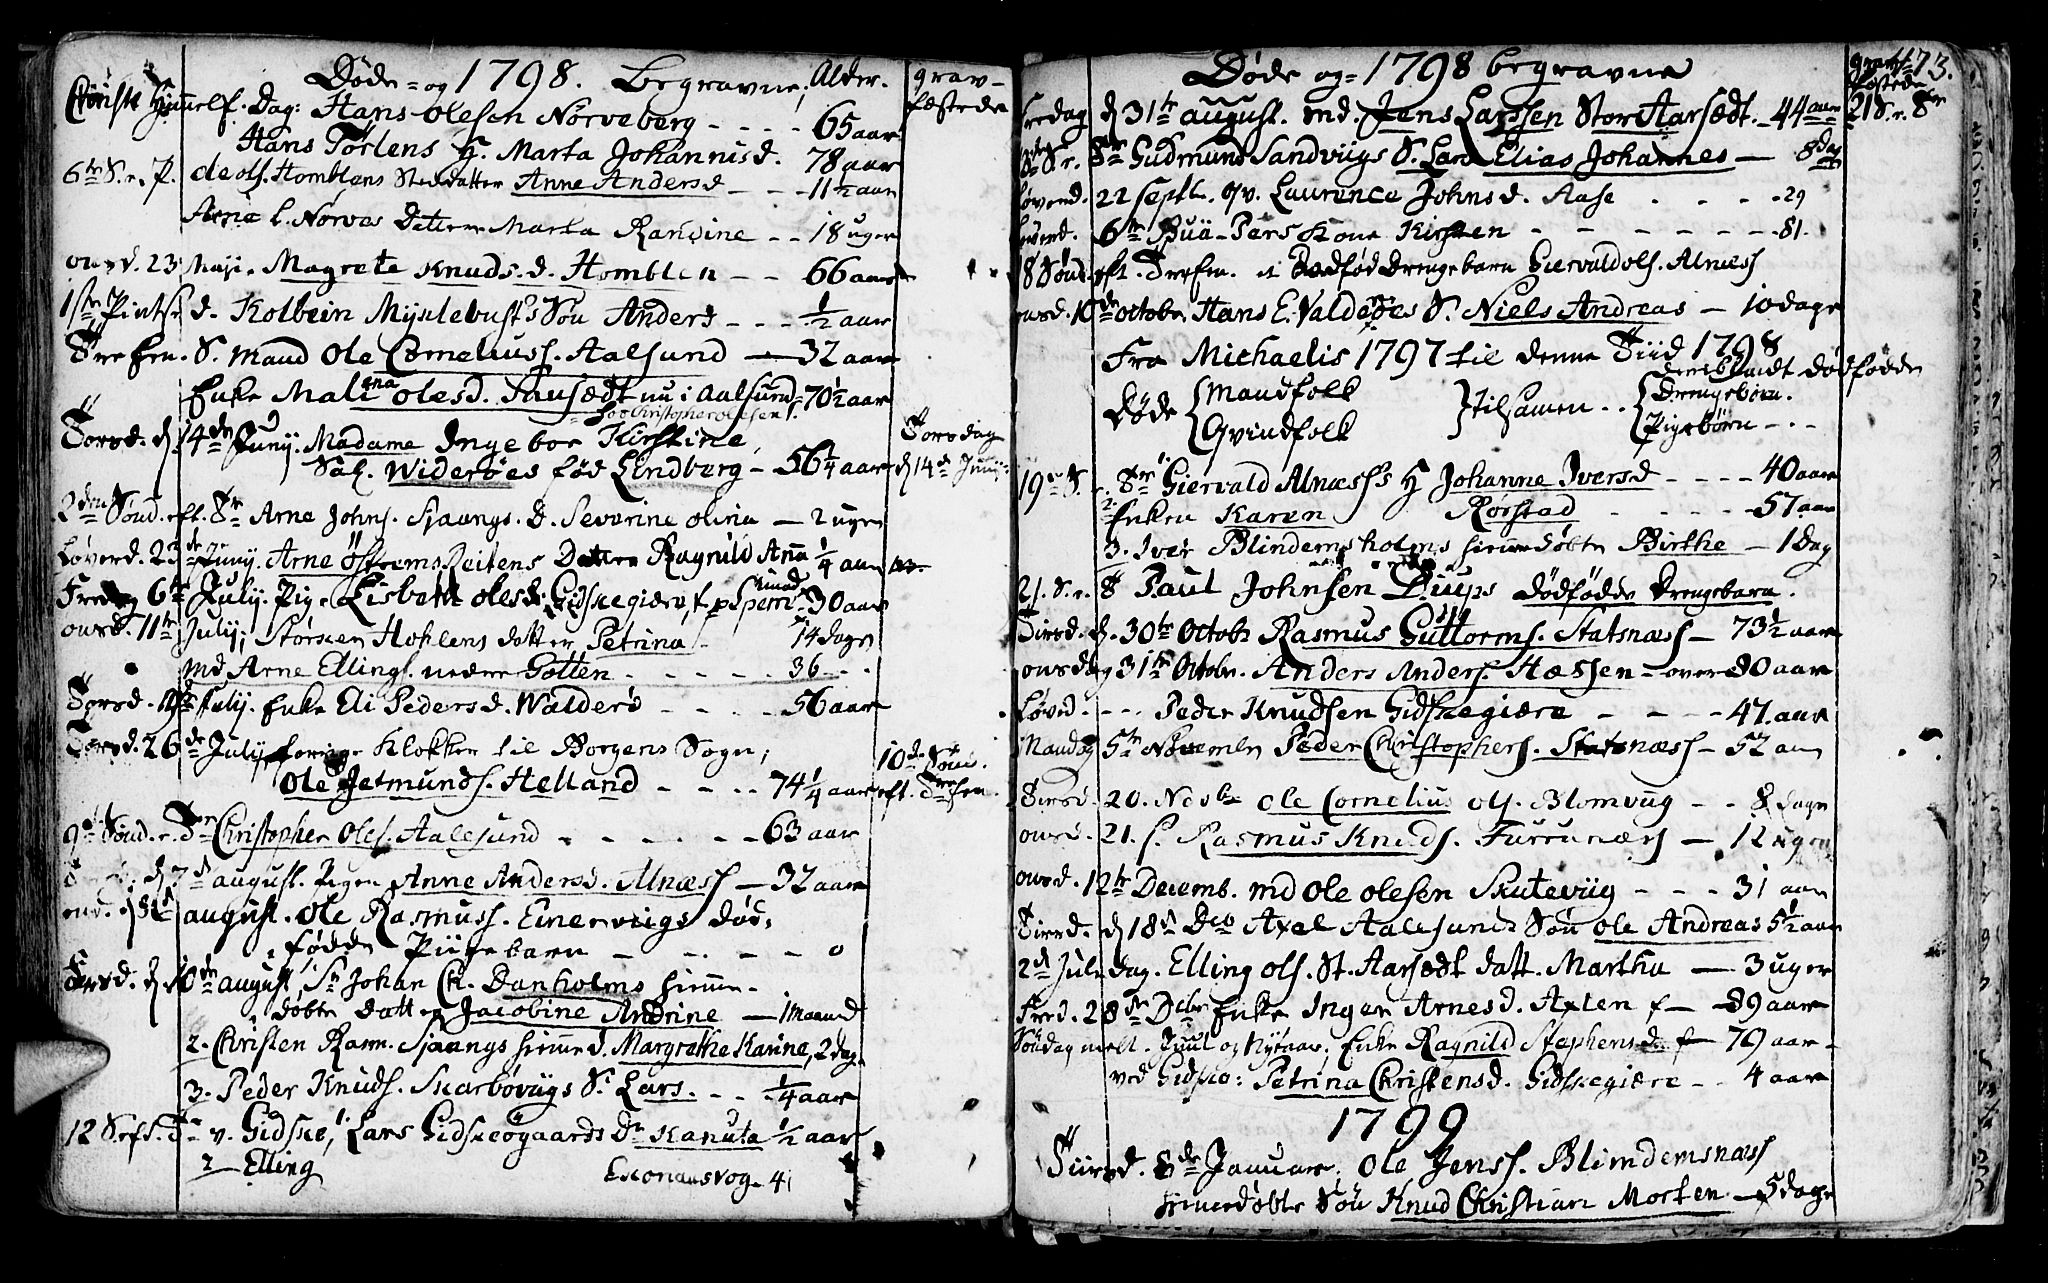 Døde og 1798. Begravne, Alder. grav-
Christi Himelf. Dag: Hans Olesen Nørveberg - - - - 65 aar fæstede
Hans Tørlens H. Marta Johannisd. 78 aar
6te S. e. P. de ols. Homblens Steddatter Anne Andersd - - 11½ aar
Arne l. Nørves Datter Marta Randine - - 18 uger
onsd. 23 Maji. Magrete Knuds. d. Homblen - - 66 aar
1ste Pintse d. Kolbein Myklebusts Søn Anders - - - ½ aar
Trefen. S. mand Ole Corneliuss. Aalsund - 32 aar
Enke Malena olesd. nu i Aalsund - 70½ aar
hos Christopher olesen
Torsd. d. 14de Junij. Madame Ingebor Kirstine, Torsdag
Sal. Widerøes fød Lindberg - 56¼ aar d 14de Junij
2den Sønd. eft. Tr Arne Johns. Sjaangs. D. Severine olina - 2 uger
Løverd. 23de Junij. Arne Østrems Reitens Datter Ragnild Anna ¼ aar
Fredag 6te Julij. Pige Lisbeth olesd. Gidskegiære, 30 aar
onsd. 11te Julij; Størkser Hohlens datter Petrina 14 dage
md Arne Ellings. nedre Gotten - - - - 36 - -
Torsd. 19de Julij. Enke Eli Pedersd. Walderø - - - - 56 aar
Torsd. 26de Julij forrige Klokker til Borgens Sogn; 10de Sønd.
Ole Jetmunds. Helland - - - - 74¼ aar eft. Trefen.
9de Sønd. e. Tr Christopher Oles. Aalesund - - - - 63 aar
d 7de august. Pigen Anne Andersd. Alnæss - 32 aar
august. Ole Rasmuss. Einervigs død-
fødde Piigebarn - - - - - 0
Torsd. d august, Sr Johan Ch. Danholms hieme-
døbte Datter Jacobine Andrine - 1 maaned
2. Christen Rasm. Sjaangs hiemed. Margrethe Karine, 2 dage
3. Peder Knuds. Skarbøvigs S. Lars. - - ¼ aar
12 S. eft. Tr v. Gidske, Lars Gidskeøgaards Dr Kanuta ½ aar
2 Elling 41
Døde og 1798 begravne grav- 173.
fæstede
Fredag d 31te august. md. Jens Larssen Stor Aarsædt. - 44 aar 21 S. e. Tr
S. e. Tr Gudmund Sandviigs S. Lars Elias Johannes - 8 dage
Løverd. 22 Septb. qv. Laurence Johnsd. Aase - - - - 29
Løverd. 6te Buä-Pers Kone Kirsten - - - - - 81.
18 Sønd. eft. Trefen. et Dødfød Drengebarn Giervald ols. Alnæss
onsd. 10de octobr. Hans E. Valderøes S. Niels Andreas - 10 dage
Fra Michaelis 1797 til denne Tiid 1798
deriblandt dødfødde
Døde { Mandfolk } tilsamen.. { Drengebørn.
Qvindfolk Pigebørn - - -
19de S. e. Tr Giervald Alnæss's H Johanne Iversd - - - - 40 aar
2 Enken Karen Rørstad - - - - 57 aar
3. Iver Blindemsholms hiemedøbte Birthe - 1 Dag
21. S. e. Tr Paul Johnsen Duups dødfødde Drengebarn.
Tirsd. d. 30te Octobr Rasmus Guttorms. Statsnæss - 73½ aar
onsdag 31te Octobr. Anders Anders. Hæssen - over 80 aar
Løved. - - - Peder Knudsen Gidskegiære - - - - 47. aar
Mandag 5te Novembr Peder Christophers. Statsnæss - 52 aar
Tirsd. 20. Novbr Ole Cornelius ols. Blomviig - - 8 dage
onsd. 21. S. Rasmus Knuds. Furrunæss - 12 uger
onsd. 12te Decemb. md Ole Olesen Skuteviig - - - 31 aar
Tirsd. d 18de Decb Axel Aalesunds Søn Ole Andreas 5½ aar
2d Juledag. Elling ols. St. Aarsædt datt. Martha - 3 uger
Fred. 28de Decbr Enke Inger Arnesd. Axlen - 89 aar
Søndag mell. Juul og Nytaar; Enke Ragnild Stephensd. - 79 aar
ved Gidske: Petrina Christensd. Gidskegiære - - 4 aar
1799
Tiirsd. 8de Januar. Ole Jenss. Blindemsnæss
hiemedøbte Søn Knud Christian Morten - 5 dage